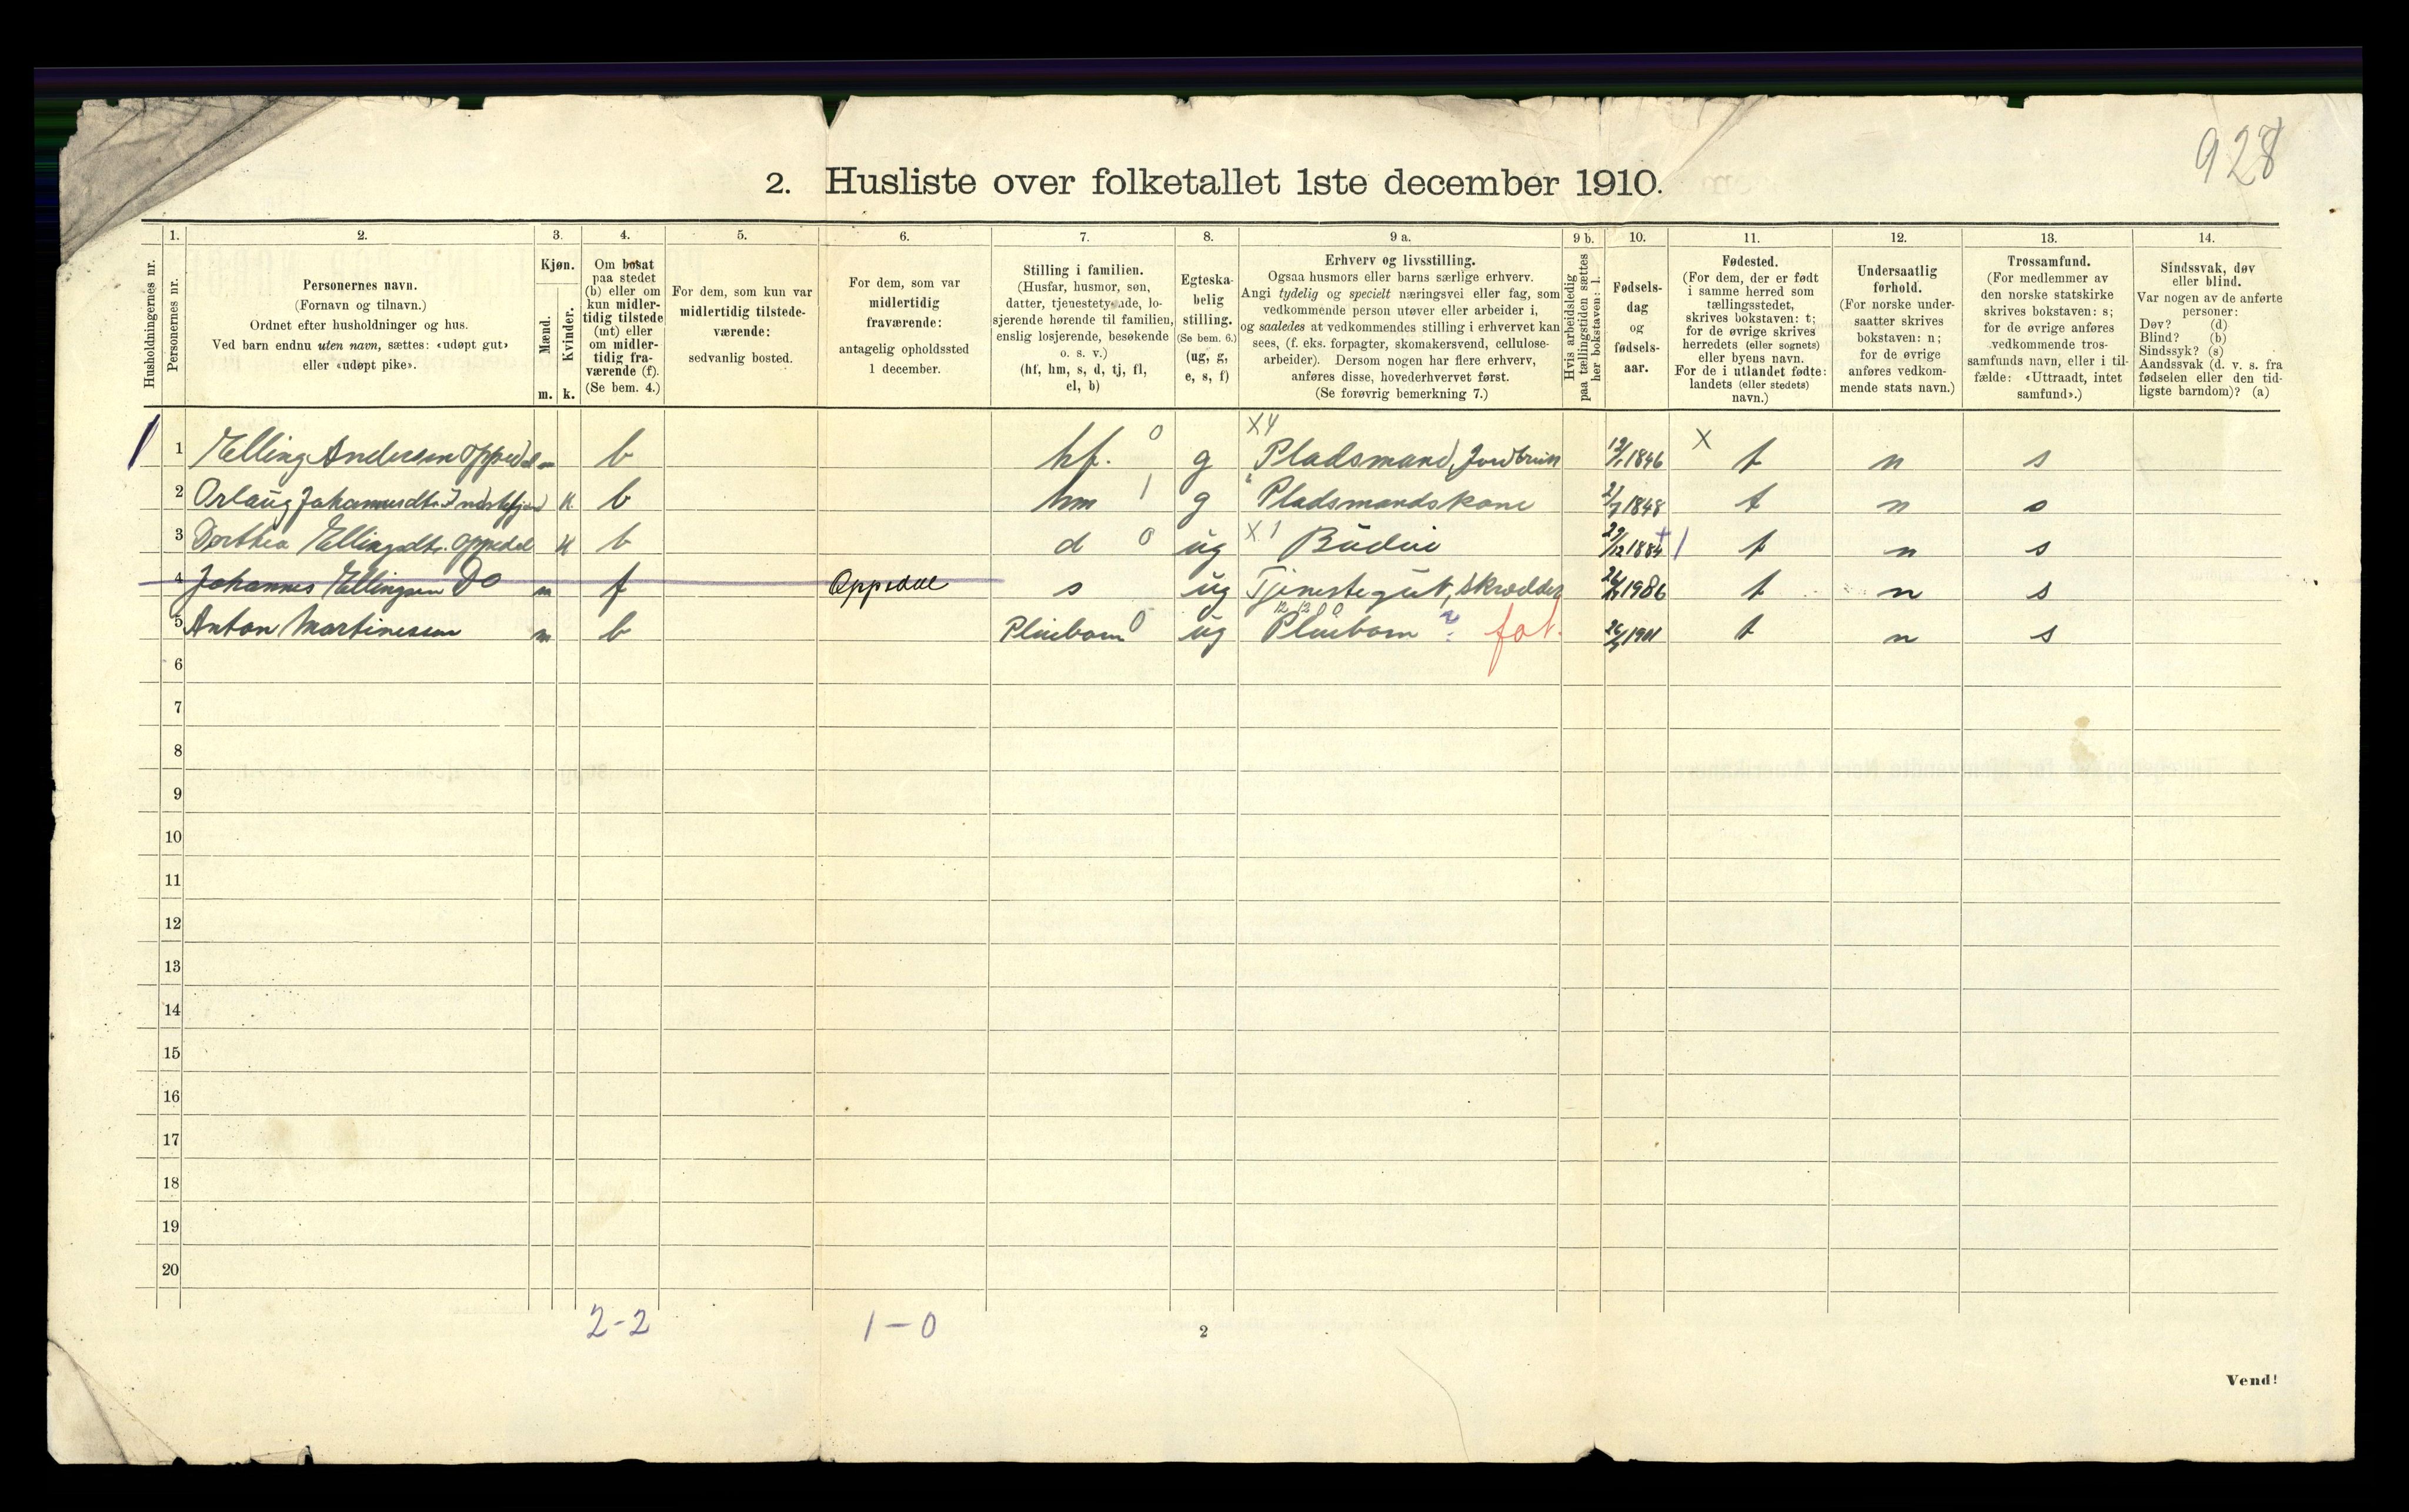 928
2. Husliste over folketallet 1ste december 1910.
1. 2. 3. 4. 5. 6. 7. 8. 9 a. 9 b. 10. 11. 12. 13. 14.
Husholdningernes nr.
Personernes nr.
Personernes navn.
(Fornavn og tilnavn.)
Ordnet efter husholdninger og hus.
Ved barn endnu uten navn, sættes: «udøpt gut»
eller «udøpt pike».
Kjøn.
Mænd.
Kvinder.
m. k.
Om bosat
paa stedet
(b) eller om
kun midler-
tidig tilstede
(mt) eller
om midler-
tidig fra-
værende (f).
(Se bem. 4.)
For dem, som kun var
midlertidig tilstede-
værende:
sedvanlig bosted.
For dem, som var
midlertidig
fraværende:
antagelig opholdssted
1 december.
Stilling i familien.
(Husfar, husmor, søn,
datter, tjenestetyende, lo-
sjerende hørende til familien,
enslig losjerende, besøkende
o. s. v.)
(hf, hm, s, d, tj, fl,
el, b)
Egteska-
belig
stilling.
(Se bem. 6.)
(ug, g,
e, s, f)
Erhverv og livsstilling.
Ogsaa husmors eller barns særlige erhverv.
Angi tydelig og specielt næringsvei eller fag, som
vedkommende person utøver eller arbeider i,
og saaledes at vedkommendes stilling i erhvervet kan
sees, (f. eks. forpagter, skomakersvend, cellulose-
arbeider). Dersom nogen har flere erhverv,
anføres disse, hovederhvervet først.
(Se forøvrig bemerkning 7.)
Hvis arbeidsledig
paa tællingstiden sættes
her bokstaven: l.
Fødsels-
dag
og
fødsels-
aar.
Fødested.
(For dem, der er født
i samme herred som
tællingsstedet,
skrives bokstaven: t;
for de øvrige skrives
herredets (eller sognets)
eller byens navn.
For de i utlandet fødte:
landets (eller stedets)
navn.)
Undersaatlig
forhold.
(For norske under-
saatter skrives
bokstaven: n;
for de øvrige
anføres vedkom-
mende stats navn.)
Trossamfund.
(For medlemmer av
den norske statskirke
skrives bokstaven: s;
for de øvrige anføres
vedkommende tros-
samfunds navn, eller i til-
fælde: «Uttraadt, intet
samfund».)
Sindssvak, døv
eller blind.
Var nogen av de anførte
personer:
Døv? (d)
Blind? (b)
Sindssyk? (s)
Aandssvak (d. v. s. fra
fødselen eller den tid-
ligste barndom)? (a)
1 1 Elling Andersen Oppedal m b hf. 0 g X4 Pladsmand, Jordbruk 1846 X t n s
2 Orlaug Johannesdtr. k b hm 1 g " Pladsmandskone 1848 t n s
3 Dorthea Ellingsdtr. Oppedal k b d 0 ug X.1 Budeie 29/12 1884 t n s
4 Johannes Ellingsen Do m f Oppedal s ug Tjenestegut, Skrædder 1986 t n s
5 Anton Martinessen m b Pleiebarn 0 ug Pleiebarn ? fat. 1901 t n s
6
7
8
9
10
11
12
13
14
15
16
17
18
19
20
2-2 1-0
2
Vend!